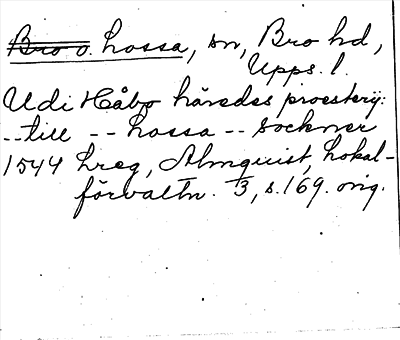 Bro o. Lossa, sn, Bro hd,
Upps. l.
Udi Håbo häredes proesterij:
-- till -- Lossa -- sockner
1544 Lreg, Almquist, Lokal-
förvaltn. 3, s. 169. orig.